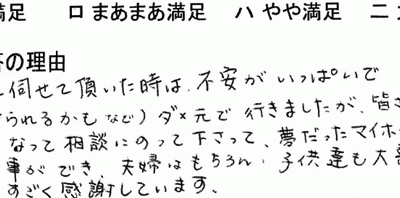 満足　ロ まあまあ満足　ハ やや満足　ニ
答の理由
に伺せて頂いた時は、不安がいっぱいで
られるかもなど）ダメ元で行きましたが、皆さ
なって相談にのって下さって、夢だったマイホ
事ができ、夫婦はもちろん、子供達も大
すごく感謝しています。